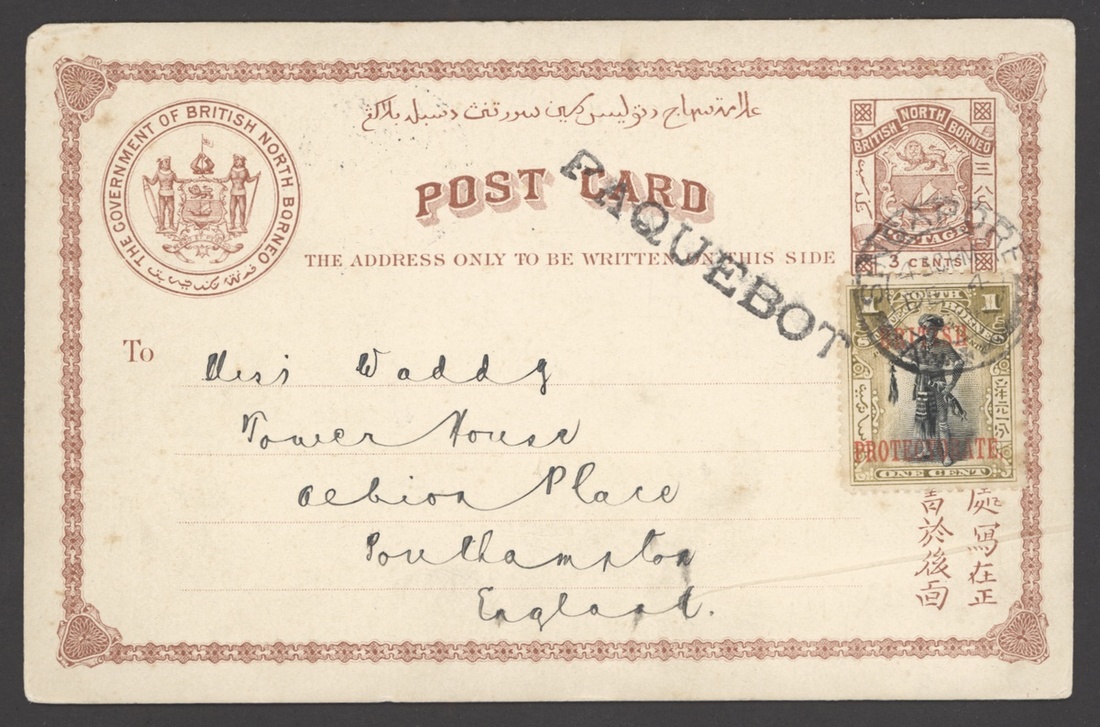 THE GOVERNMENT OF BRITISH NORTH BORNEO
POST CARD
THE ADDRESS ONLY TO BE WRITTEN ON THIS SIDE
BRITISH NORTH BORNEO
POSTAGE
3 CENTS
PAQUEBOT
SINGAPORE
1 NORTH BORNEO 1
BRITISH
PROTECTORATE
ONE CENT
To
Miss Waddy
Tower House
Albion Place
Southampton
England.
處寫在正
書於後面